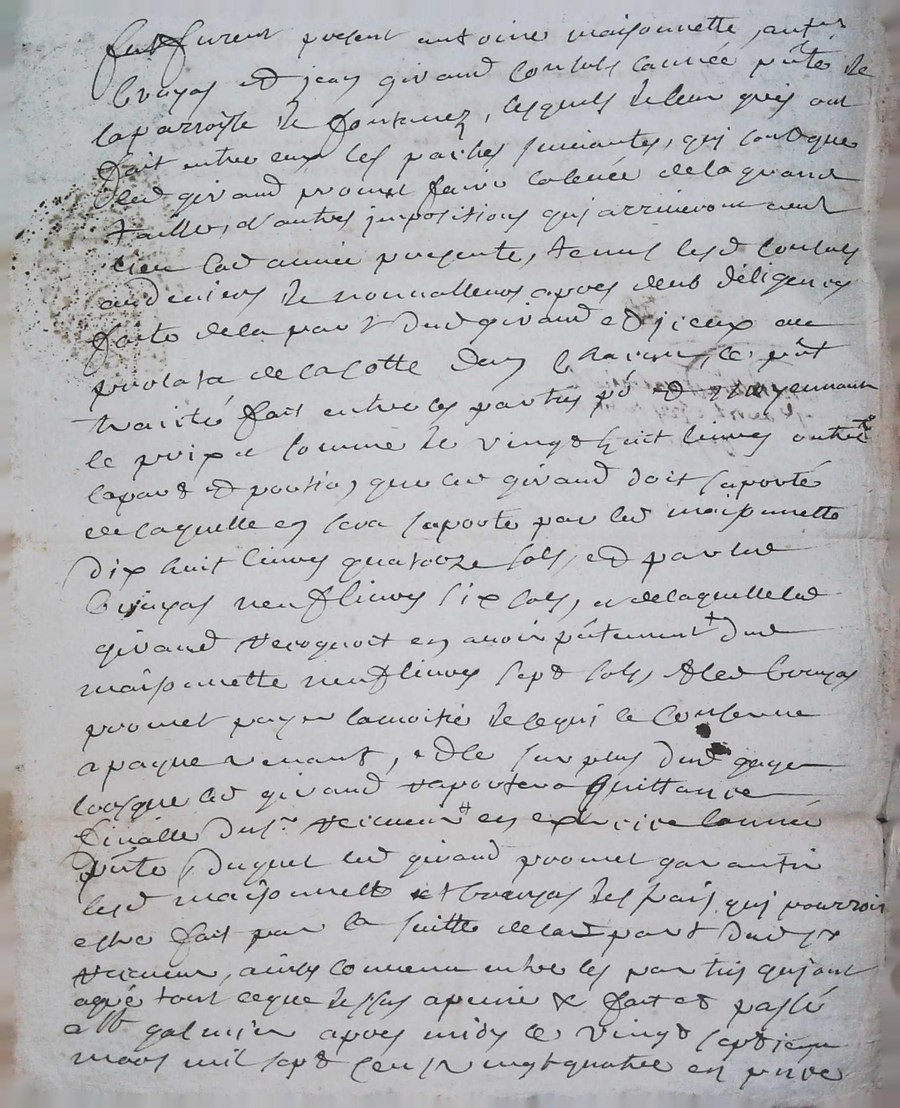 furent present antoine maisonnette, ant.
bruyas et jean giraud consuls lannée pñte de
la parroisse de fontanez, lesquels de leur grés ont
fait entre eux les paches suivantes, qui sont que
led giraud promet faire la levée de la grand
taille, d'autres impositions qui arriveront
lad année presente, tenus lesd consuls
de nouvalleurs apres deub déligences
faite de la part dud giraud et iceux au
prorata de la cotte dun chacun, le pñt
traitté fait entre les parties po et moyennant
le prix et somme de vingt huit livres outre
la part et portion que led giraud doit suporté
de laquelle en sera suporté par led maisonnette
dix huit livres quatorze sols, et par led
bruyas neuf livres six sols, de laquelle led
giraud recognoit en avoir pñtement dud
maisonnette neuf livres sept sols, et led bruyas
promet payer la moitié de ce qui le conserne
a paque venant, et le surplus dud gage
lorsque led giraud raportera quittance
finalle du sr receveur en exercice lannée
pñte, duquel led giraud promet garantir
lesd maisonnette et bruyas des frais qui pourroit
estre fait par la suitte de la part dud sr
receveur, ainsy convenu entre les parties qui ont
agréé tout ce que dessus a peine & fait et passé
a St galmier apres midy le vingt septieme
mars mil sept cent vingt quatre en pñce